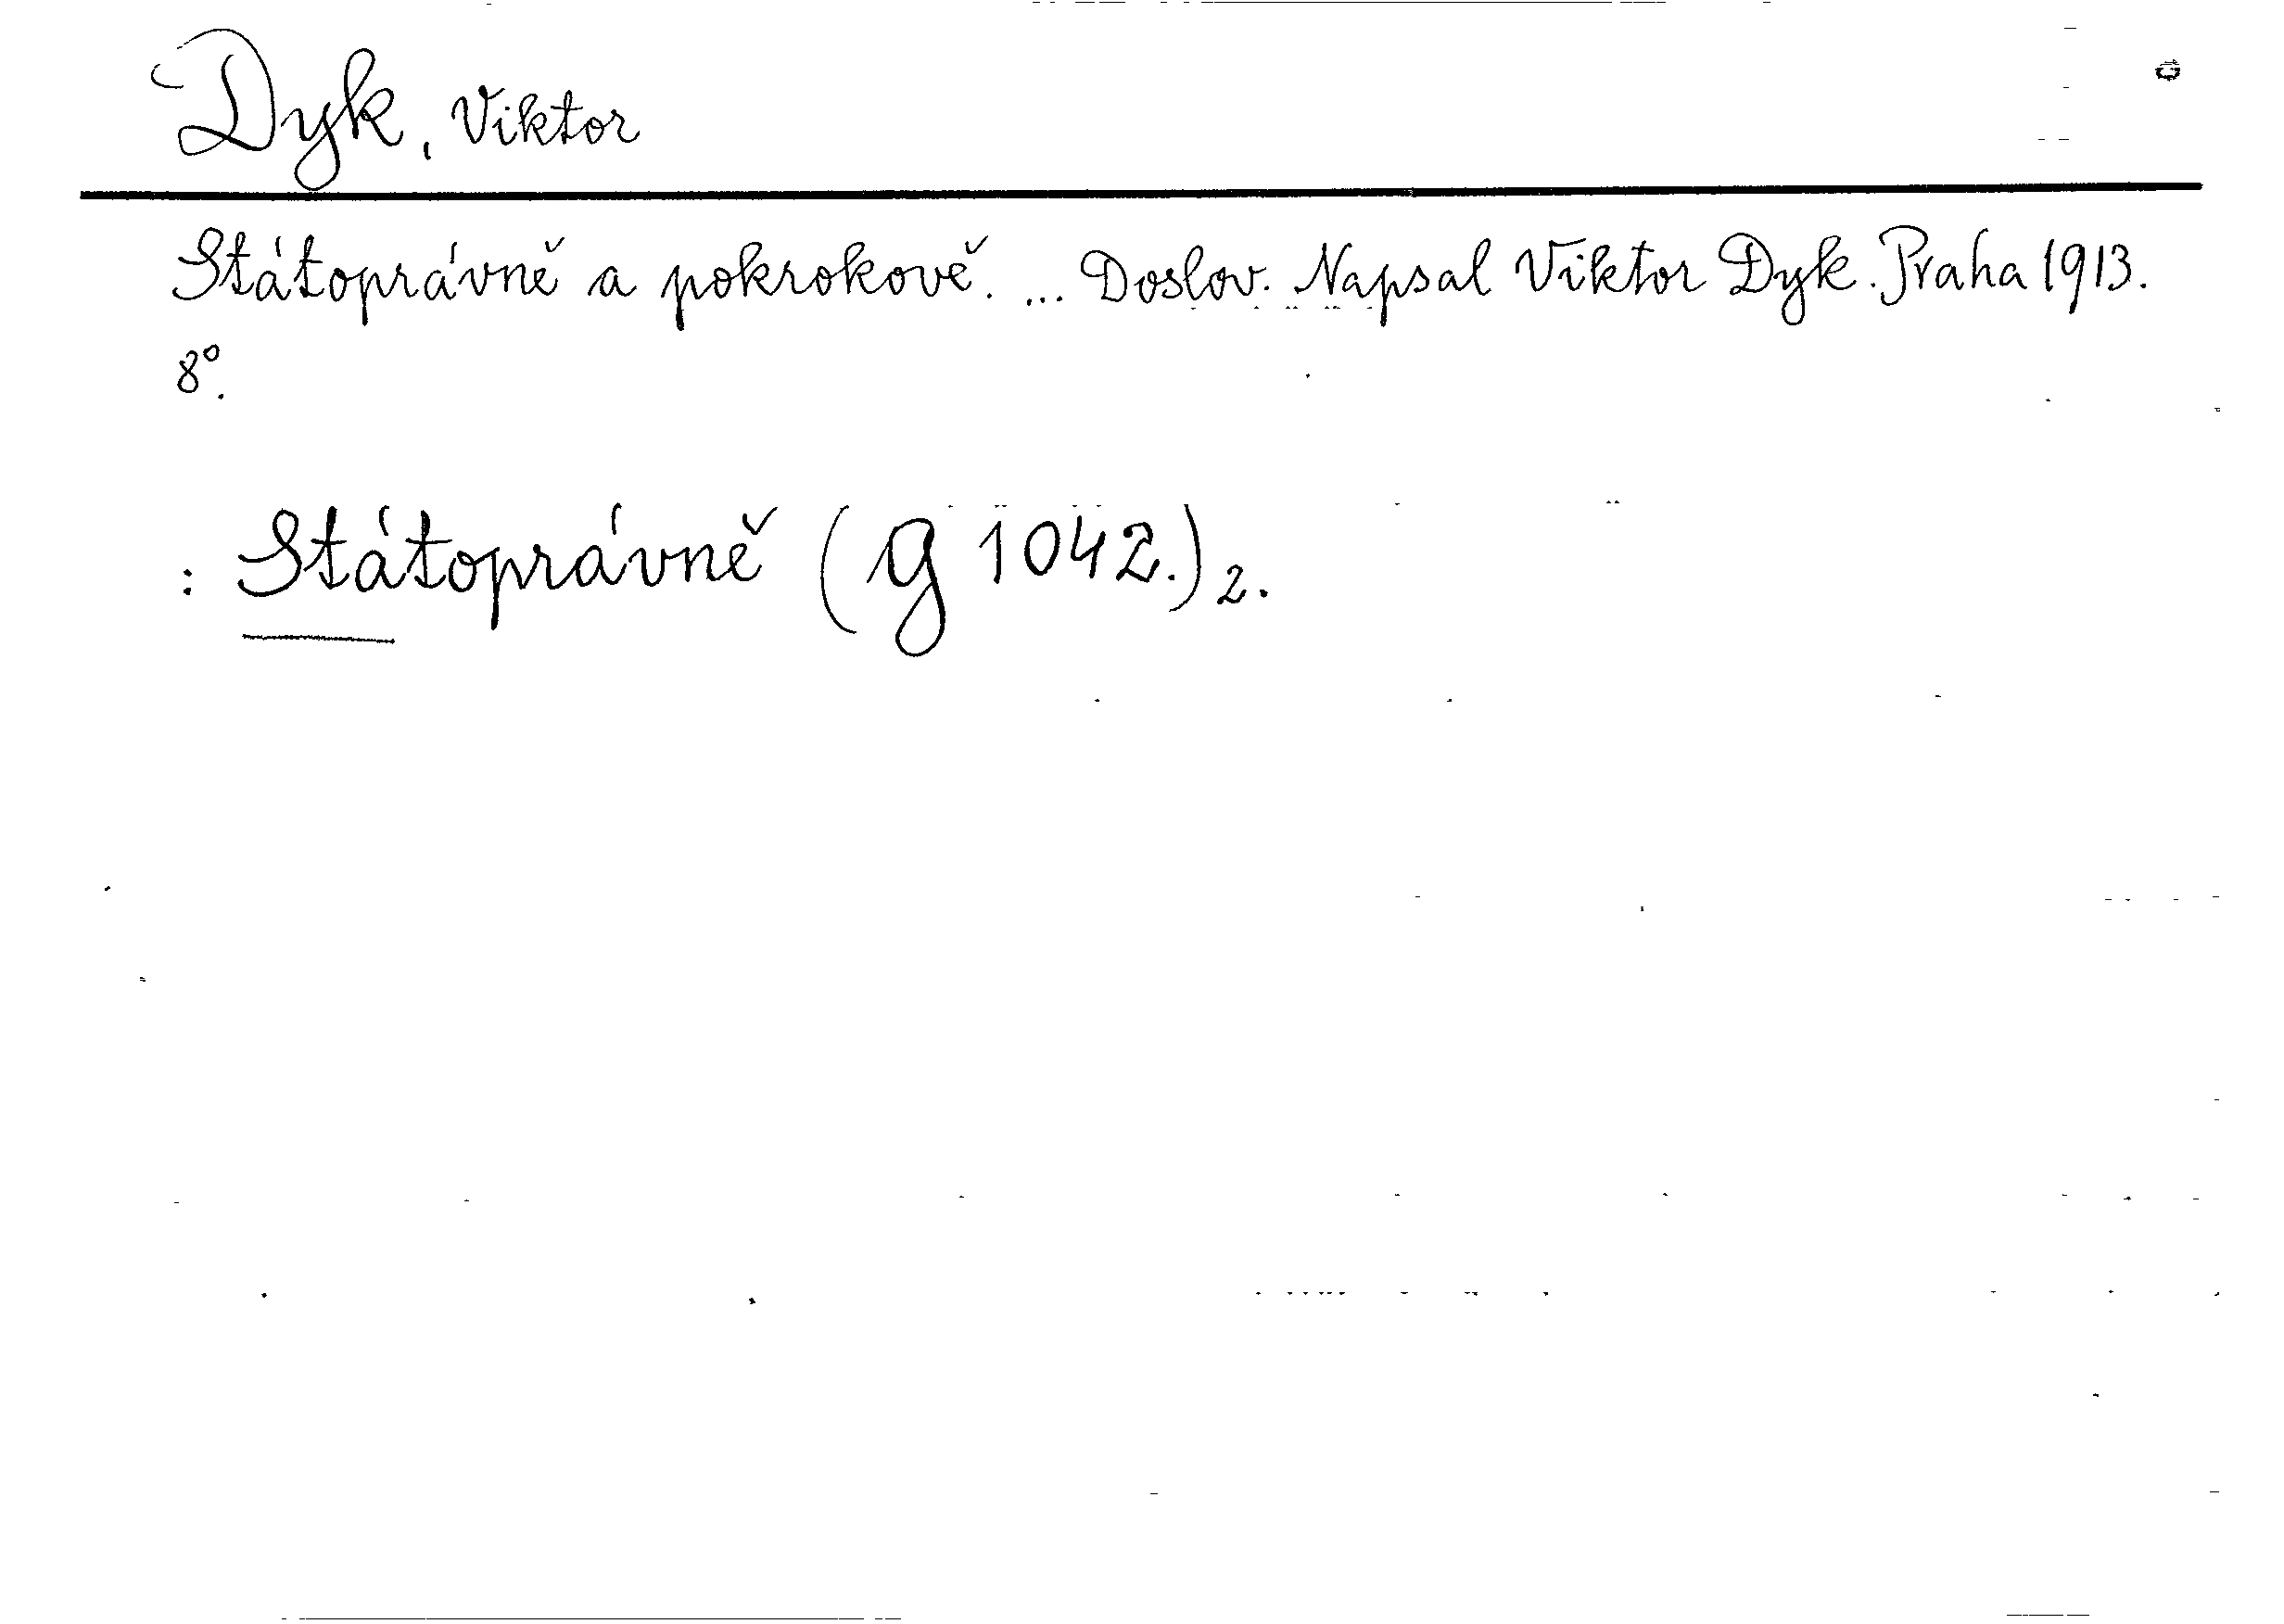 Dyk, Viktor
Státoprávně a pokrokově. ... Doslov. Napsal Viktor Dyk. Praha 1913.
8°.
: Státoprávně (g 1042.) 2.